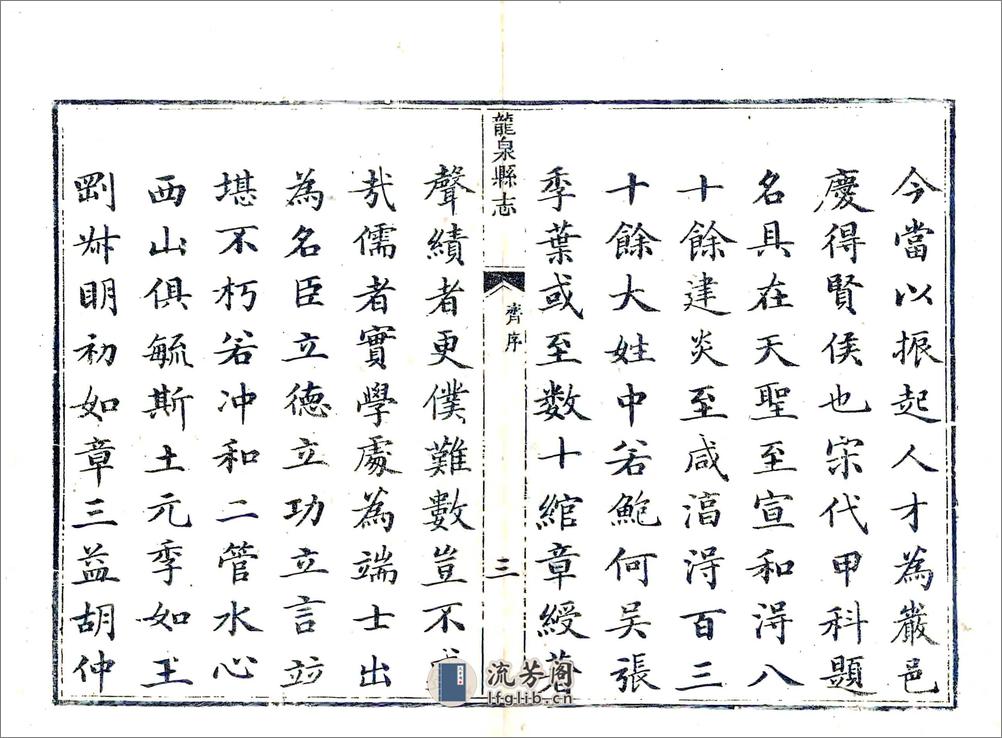 今當以振起人才為巖邑
慶得賢侯也宋代甲科題
名具在天聖至宣和得八
十餘建炎至咸淳得百三
十餘大姓中若鮑何吴張
季葉或至數十綰章綬蓍
龍泉縣志
齊序
三
聲績者更僕難數豈不
㢤儒者實學處為端士出
為名臣立德立功立言竝
堪不朽若冲和二管水心
西山俱毓斯土元季如王
剛叔明初如章三益胡仲
流芳阁
lfglib.cn